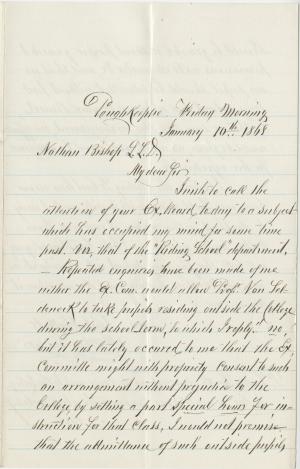 Poughkeepsie Friday Morning
January 10th 1868
Nathan Bishop L.L.D.
My dear Sir
I wish to call the
attention of your Ex. Board to day to a subject
which has occupied my mind for some time
past. Viz, that of the "Riding School" department,
— Repeated enquiries have been made of me
wither the Ex Com. would allow Prof. Von Sel
deneck to take pupils residing outside the College
during the school term, to which I reply.d no,
but it has lately occured to me that the Ex.
Committe might with propriety consent to such
an arrangement without prejudice to the
College by setting a part special hours for in-
struction for that class, I would not premise
that the admittance of such outside pupils